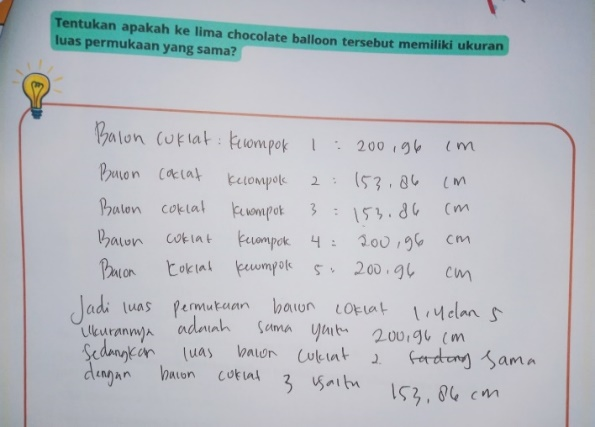 Tentukan apakah ke lima chocolate balloon tersebut memiliki ukuran
luas permukaan yang sama?
Balon cuklat : kelompok 1 : 200,96 cm
Balon coclat kelompok 2 : 153,86 cm
Balon coklat kelompok 3 : 153.86 cm
Balon coklat kelompok 4 : 200,96 cm
Balon coklat kelompok 5 : 200.96 cm
Jadi luas permukaan balon coklat 1,4 dan 5
Ukurannya adalah sama yaitu 200,96 cm
Sedangkan luas balon cuklat 2 sama
dengan balon coklat 3 yaitu 153,86 cm